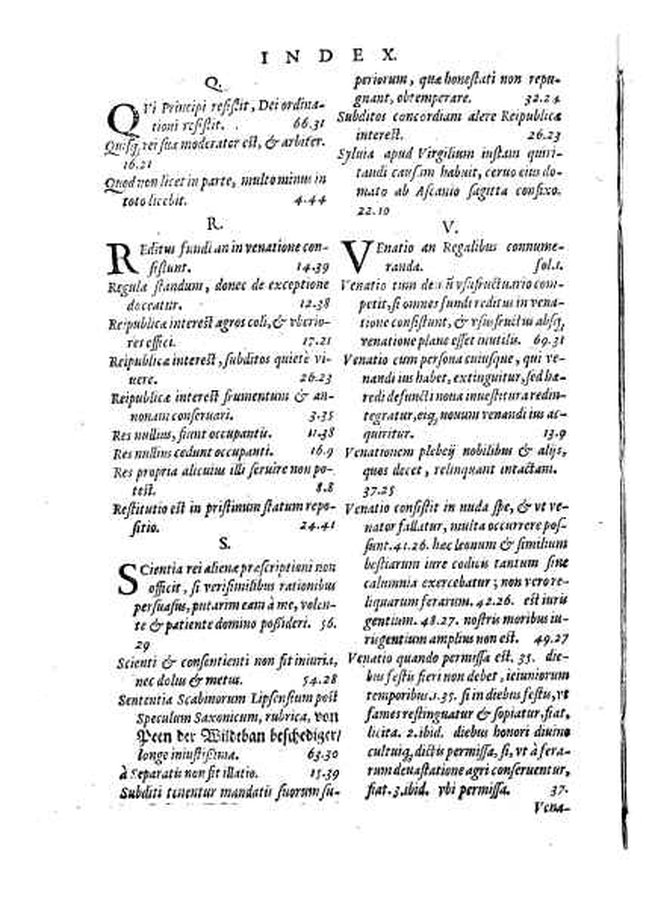 INDEX.
Q.
QVi Principi resistit, Dei ordina-
tioni resistit. 66.31
Quisq; rei suæ moderator est, & arbiter.
16.21
Quod non licet in parte, multo minus in
toto licebit. 4.44
R.
REditus fundi an in venatione con-
sistunt. 14.39
Regulæ standum, donec de exceptione
doceatur. 12.38
Reipublicæ interest agros coli, & vberio-
res effici. 17.21
Reipublicæ interest, subditos quietè vi-
uere. 26.23
Reipublicæ interest frumentum & an-
nonam conseruari. 3.35
Res nullius, fiunt occupantis. 11.38
Res nullius cedunt occupanti. 16.9
Res propria alicuius illi seruire non po-
test. 8.8
Restitutio est in pristinum statum repo-
sitio. 24.41
S.
SCientia rei alienæ præscriptioni non
officit, si verisimilibus rationibus
persuasus, putarim eam à me, volen-
te & patiente domino possideri. 56.
29
Scienti & consentienti non fit iniuria,
nec dolus & metus. 54.28
Sententia Scabinorum Lipsensium post
Speculum Saxonicum, rubrica, von
Peen der Wildtban beschediger/
longe iniustissima. 63.30
à Separatis non fit illatio. 15.39
Subditi tenentur mandatis suorum su-
periorum, quæ honestati non repu-
gnant, obtemperare. 32.24
Subditos concordiam alere Reipublicæ
interest. 26.23
Sylvia apud Virgilium iustam quiri-
tandi causam habuit, ceruo eius do-
mato ab Ascanio sagitta confixo.
22.10
V.
VEnatio an Regalibus connume-
randa. fol.1.
Venatio tum demũ vsufructuario com-
petit, si omnes fundi reditus in vena-
tione consistunt, & vsusfructus absq;
venatione plane esset inutilis. 69.31
Venatio cum persona cuiusque, qui ve-
nandi ius habet, extinguitur, sed hæ-
redi defuncti noua inuestitura redin-
tegratur, eiq; nouum venandi ius ac-
quiritur. 13.9
Venationem plebeij nobilibus & alijs,
quos decet, relinquant intactam.
37.25
Venatio consistit in nuda spe, & vt ve-
nator fallatur, multa occurrere pos-
sunt. 41.26. hæc leonum & similium
bestiarum iure codicis tantum sine
calumnia exercebatur; non vero re-
liquarum ferarum. 42.26. est iuris
gentium. 48.27. nostris moribus iu-
ris gentium amplius non est. 49.27
Venatio quando permissa est. 35. die-
bus festis fieri non debet, ieiuniorum
temporibus. 1.35. si in diebus festis, vt
fames restinguatur & sopiatur, fiat,
licita. 2. ibid. diebus honori diuino
cultuiq; dictis permissa, si, vt à fera-
rum deuastatione agri conseruentur,
fiat. 3. ibid. vbi permissa. 37.
Vena-